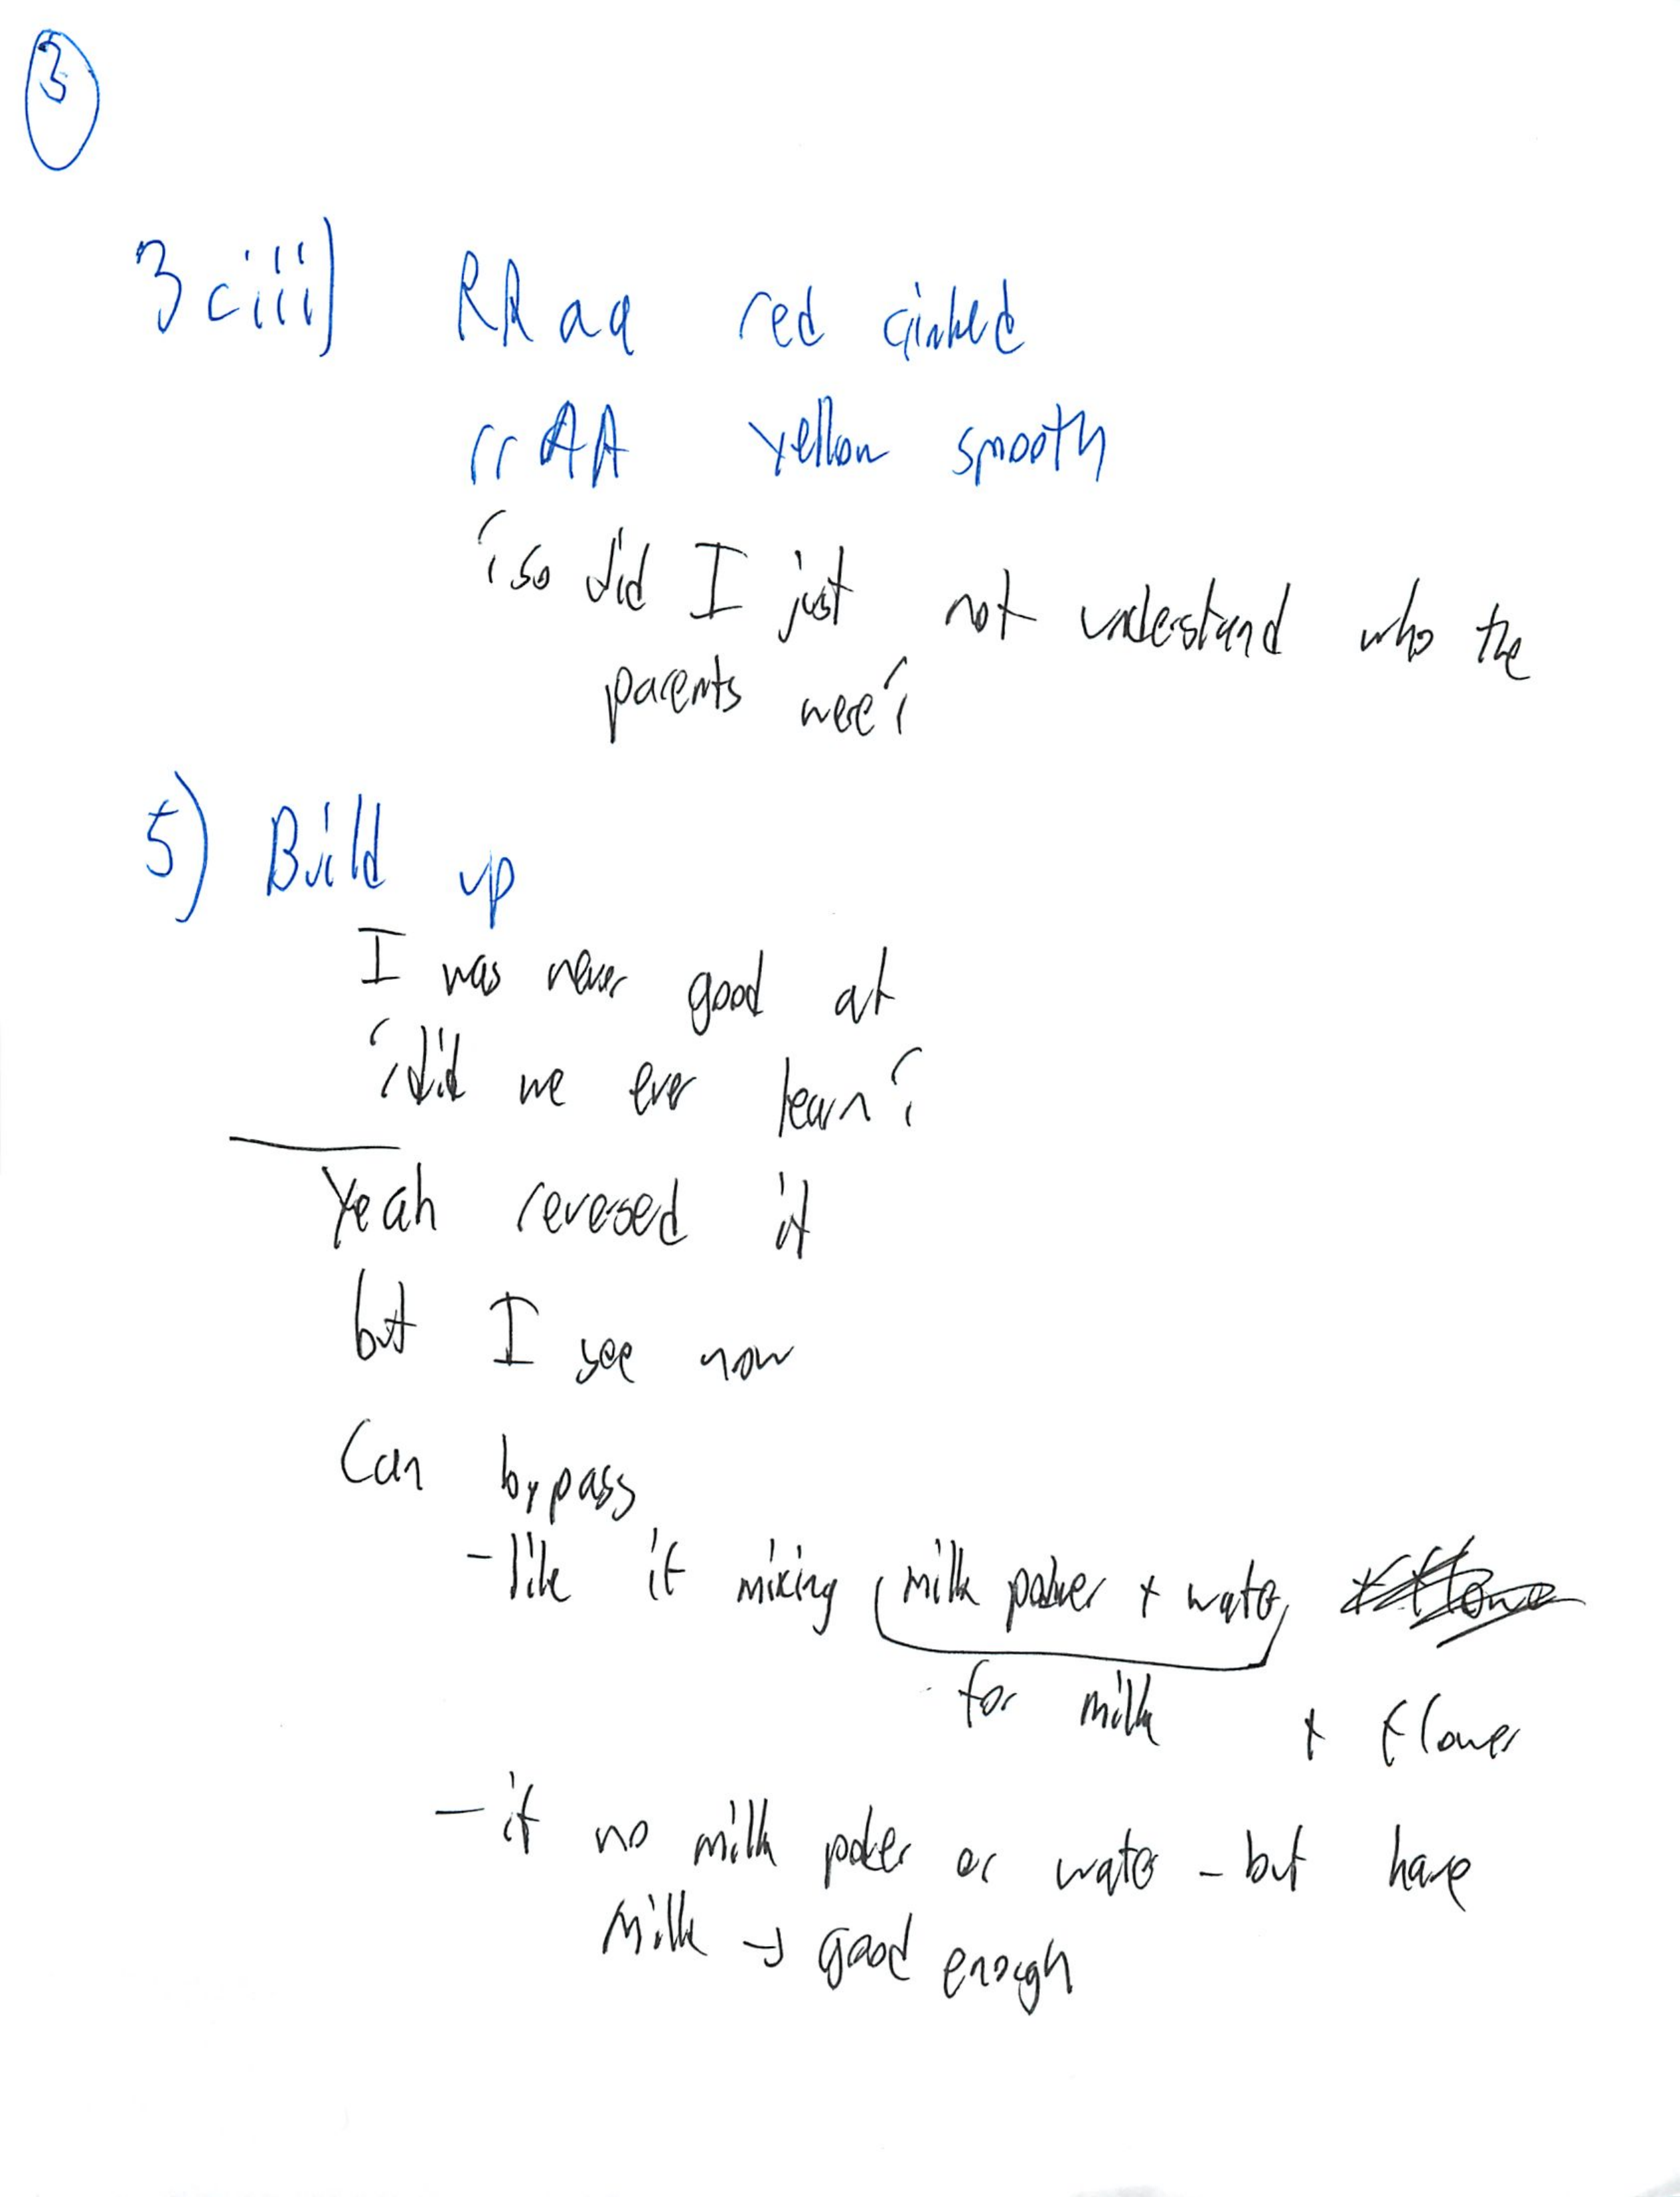 3
3ciii) RRaa red crinkled
rrAA yellow smooth
¿so did I just not understand who the
parents were?
5) Build up
I was never good at
¿did we ever learn?
Yeah reversed it
but I see now
Can bypass
- like if mixing milk poder + water
for milk + flower
- if no milk poder or water - but have
milk → good enough